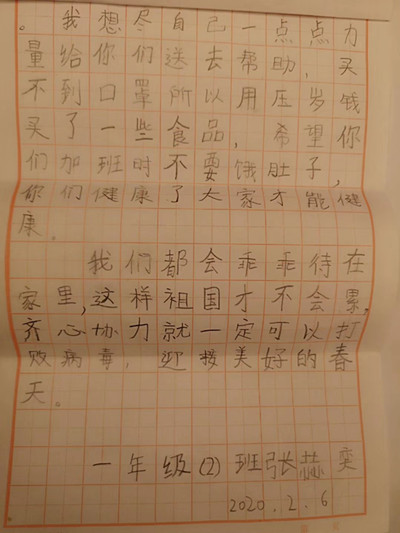 。我想尽自己一点点力
量给你们送去帮助,买
不到口罩所以用压岁钱
买了一些食品,希望你
们加班时不要饿肚子,
你们健康了大家才能健
康。
我们都会乖乖待在
家里,这样祖国才不会累,
齐心协力就一定可以打
败病毒,迎接美好的春
天。
一年级(2)班张赫奕
2020.2.6